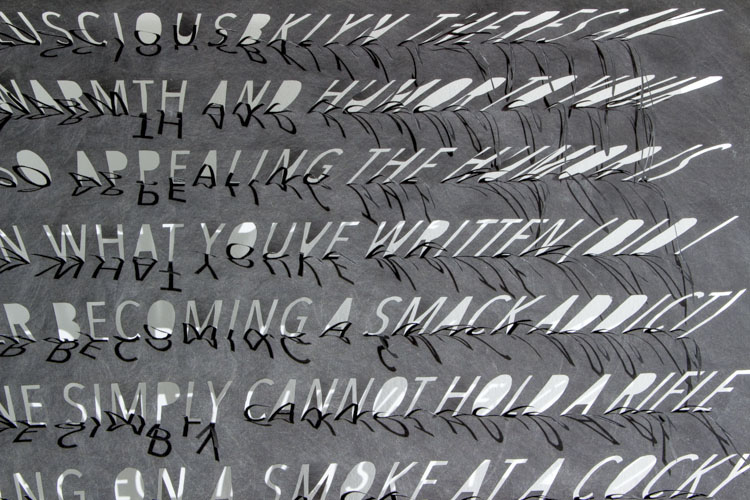 NSCIOUSBKLYN THERES A
WARMTH AND HUMOR TO YOUR
SO APPEALING THE HUMOR IS
N WHAT YOUVE WRITTEN I DID
R BECOMING A SMACK ADDICT I
NE SIMPLY CANNOT HOLD A RIFLE
NG ON A SMOKE AT A COCKY